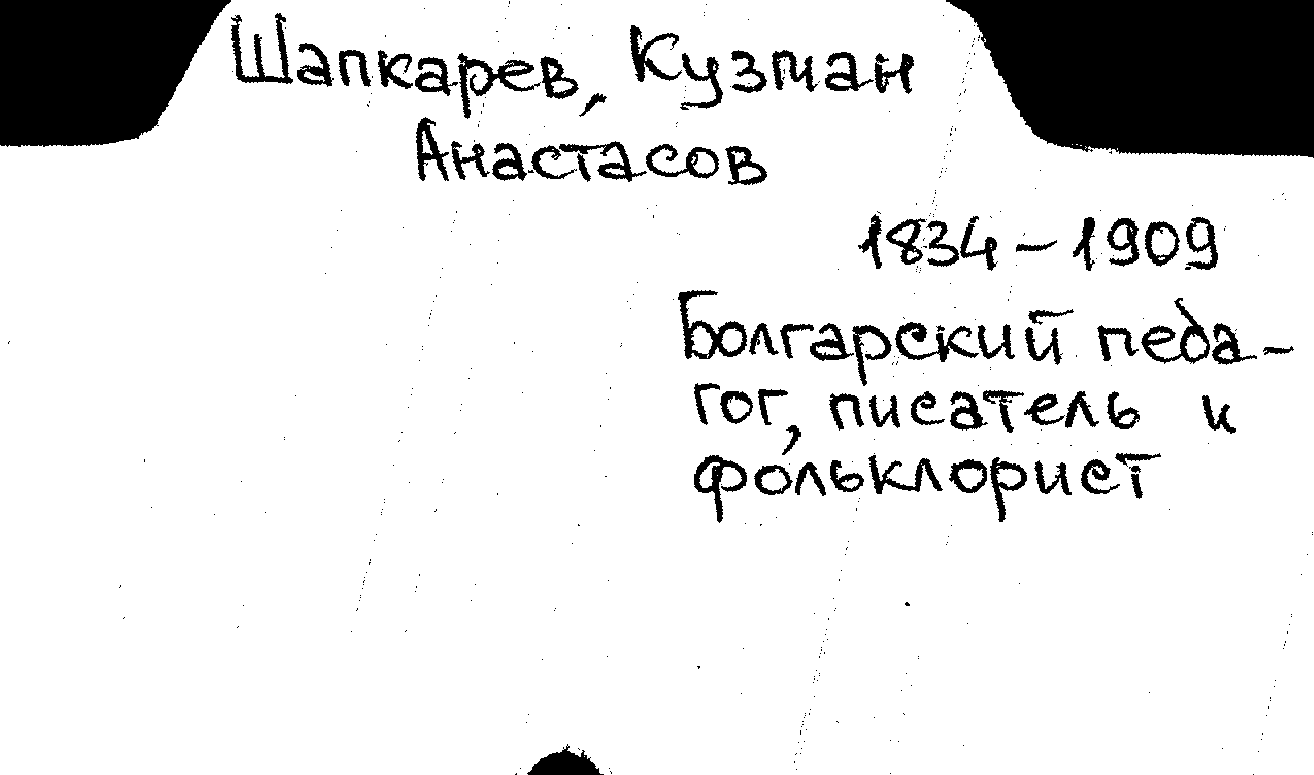 Шапкарев, Кузман
Анастасов
1834-1909
Болгарский педа-
гог, писатель и
фольклорист